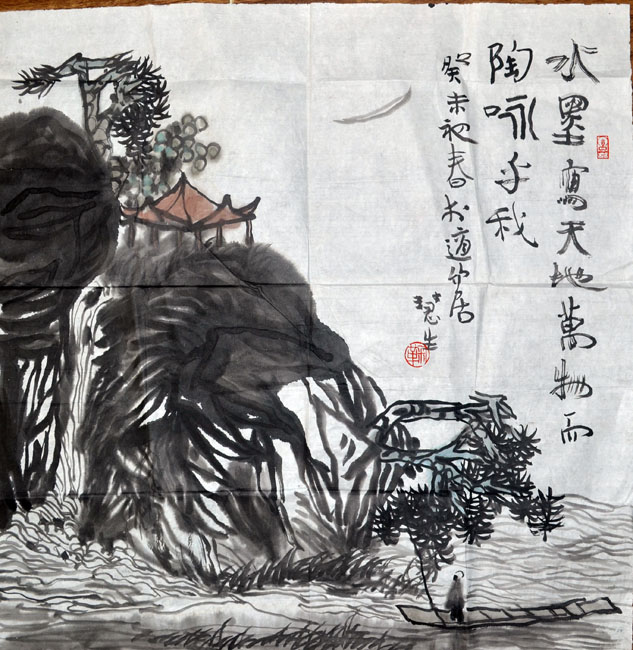 水墨寫天地萬物而
陶咏乎我
癸未初春於適尔居
慧生